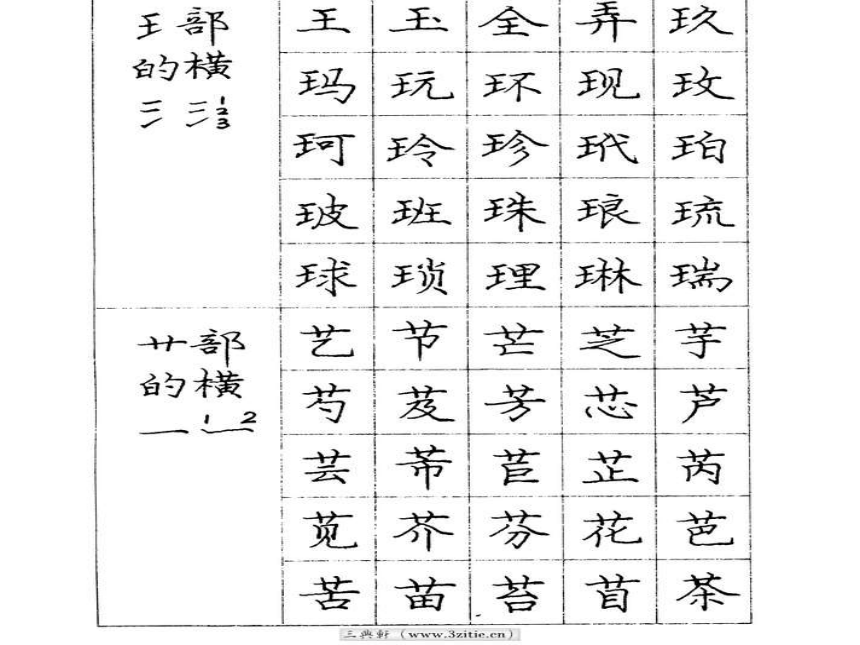 王部
的横
123
王 玉 全 弄 玖
玛 玩 环 现 玫
珂 玲 珍 玳 珀
玻 班 珠 琅 琉
球 琐 理 琳 瑞
艹部
的横
1 2
艺 节 芒 芝 芋
芍 芨 芳 芯 芦
芸 芾 苣 芷 芮
苋 芥 芬 花 芭
苦 苗 苔 苜 茶
三典轩（www.3zitie.cn）